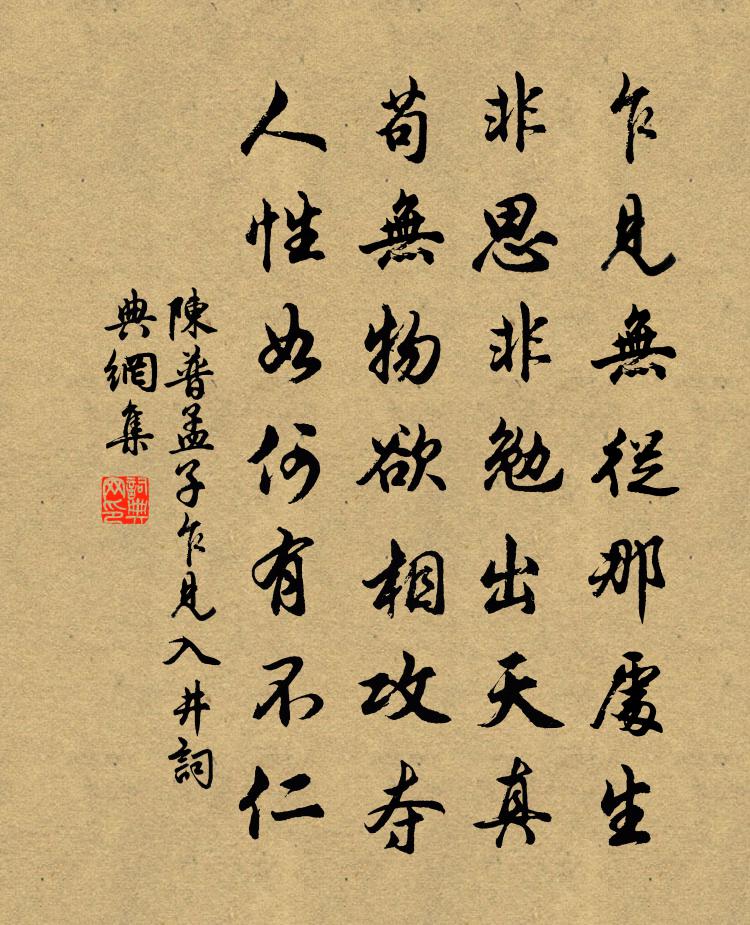 乍見無從那處生
非思非勉出天真
苟無物欲相攻夺
人性如何有不仁
陳普孟子乍見入井詞
典網集
詞典
网印